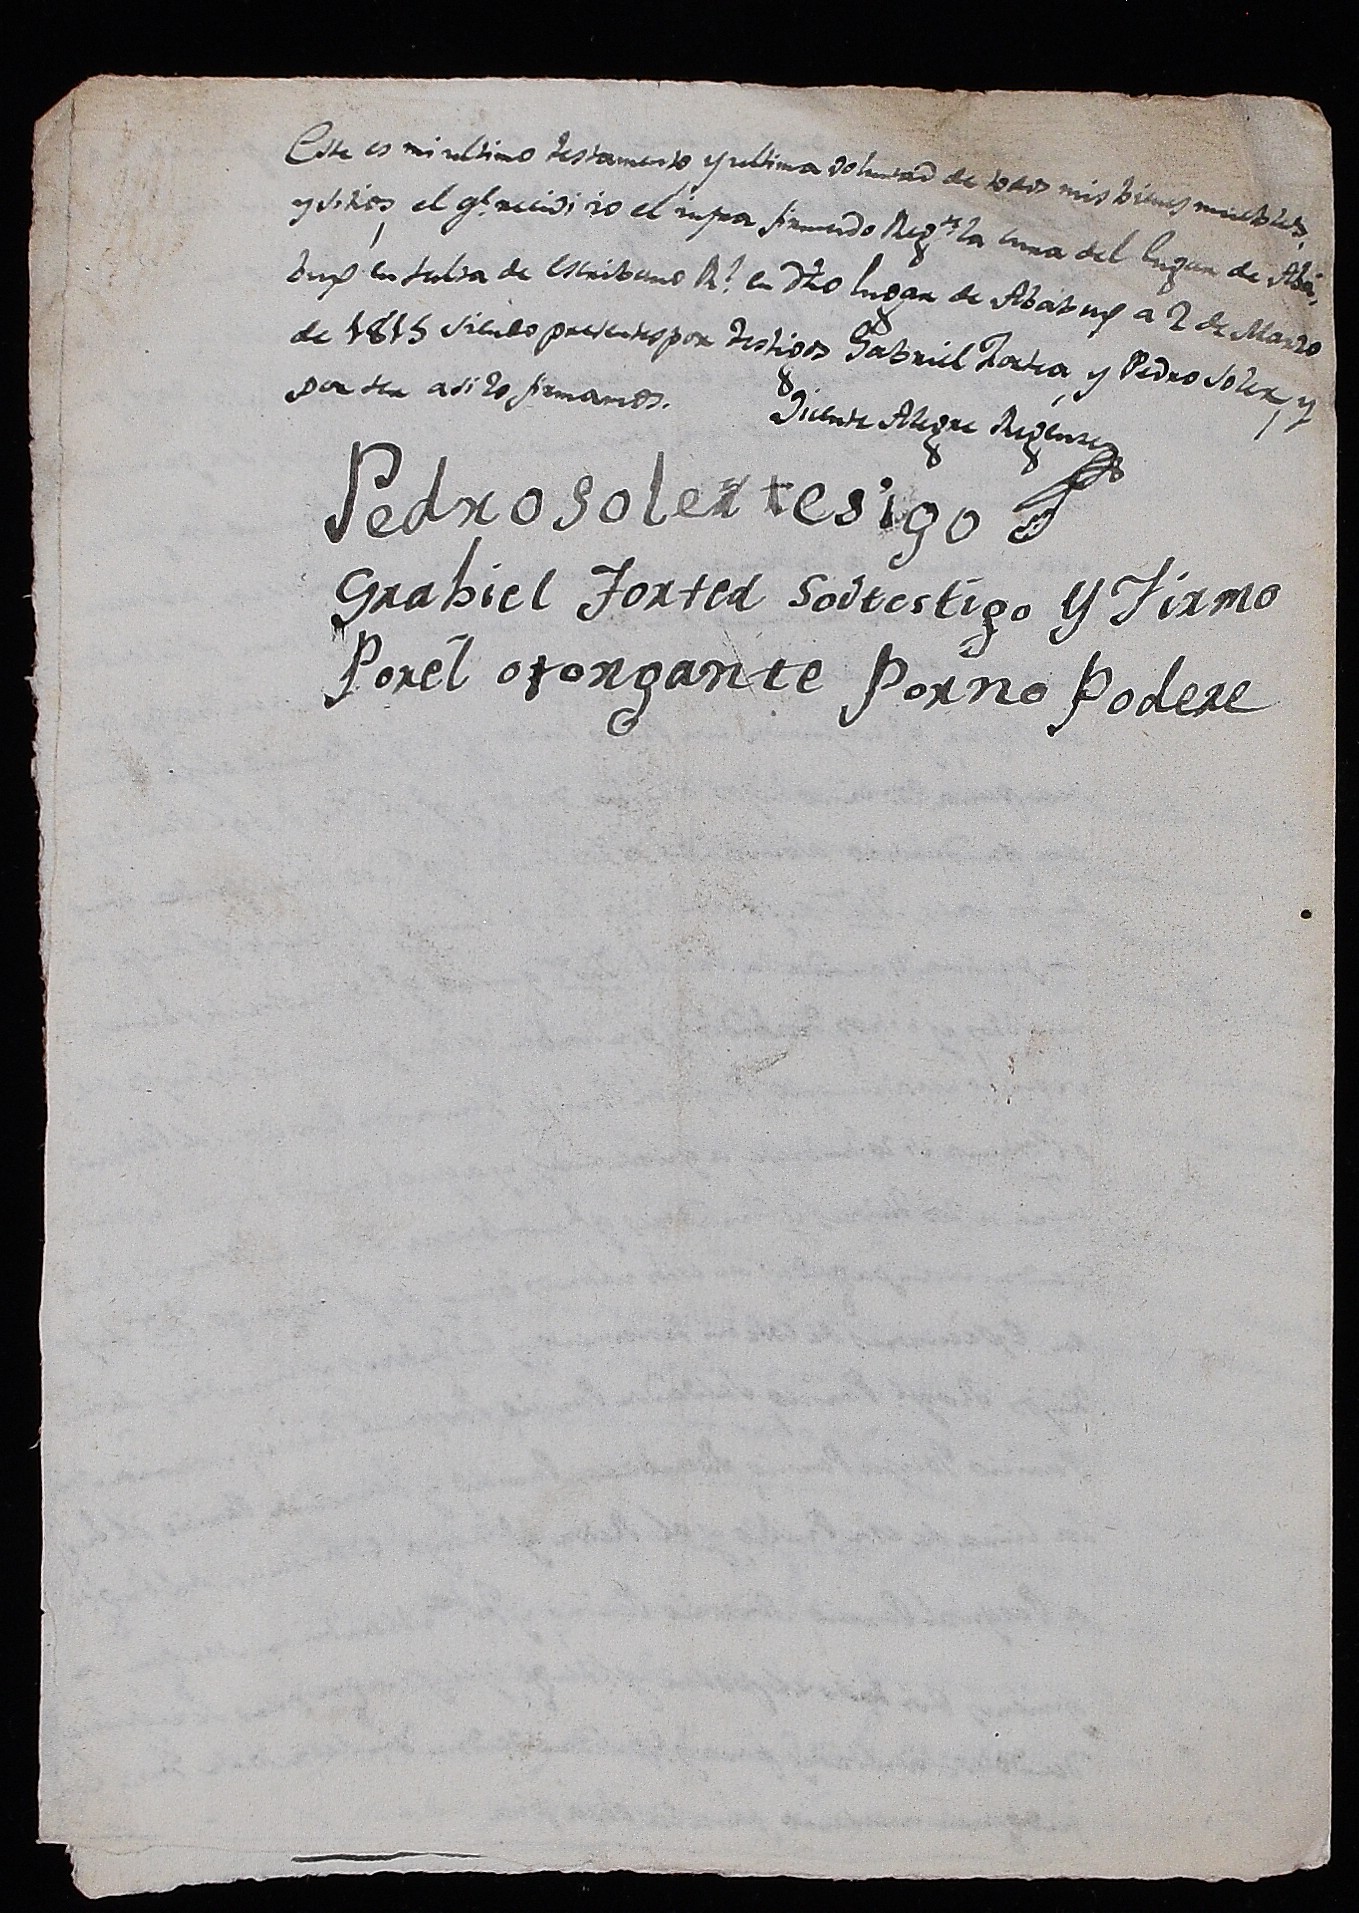 Este es mi ultimo testamento y ultima voluntad de todos mis bienes muebles,
y sitios, el ql. recivi io el infra firmado Regte. la cura del lugar de Aba,
buj en falta de escribano Rl. en dho lugar de Ababuj a 2 de Marzo
de 1815 siendo presentes por testigos Gabriel Forten, y Pedro Soler, y
por ser asi lo firmamos.
Vicente Alegre Regente
Pedro soler tesigo
Grabiel Forted Soi testigo Y Firmo
Por el otorgante Por no Podere